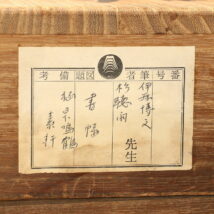 番号筆者図題備考
伊藤博文
杉聴雨
先生
書幅
鳴鶴
素軒